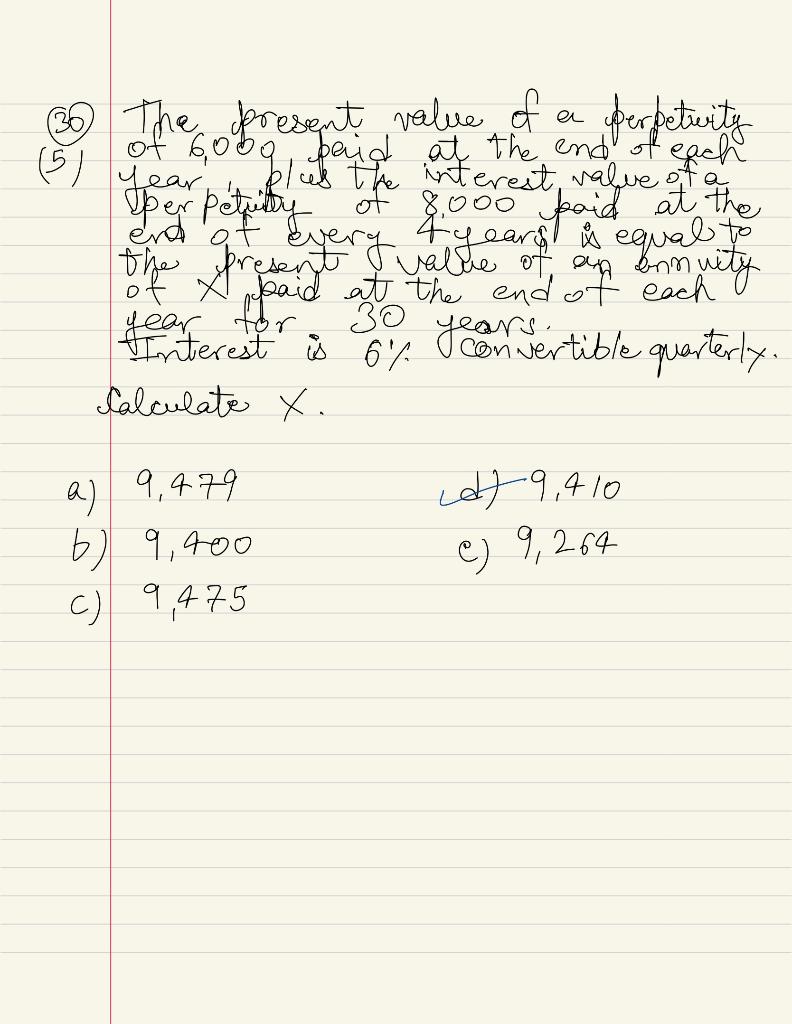 30 The present value of a perpetuity
(5) of 6,000 paid at the end of each
year, plus the interest value of a
perpetuity of 8,000 paid at the
end of every 4 years is equal to
the present value of an annuity
of X paid at the end of each
year for 30 years.
Interest is 6% convertible quarterly.
Calculate X.
a) 9,479
d) 9,410
b) 9,400
e) 9,264
c) 9,475